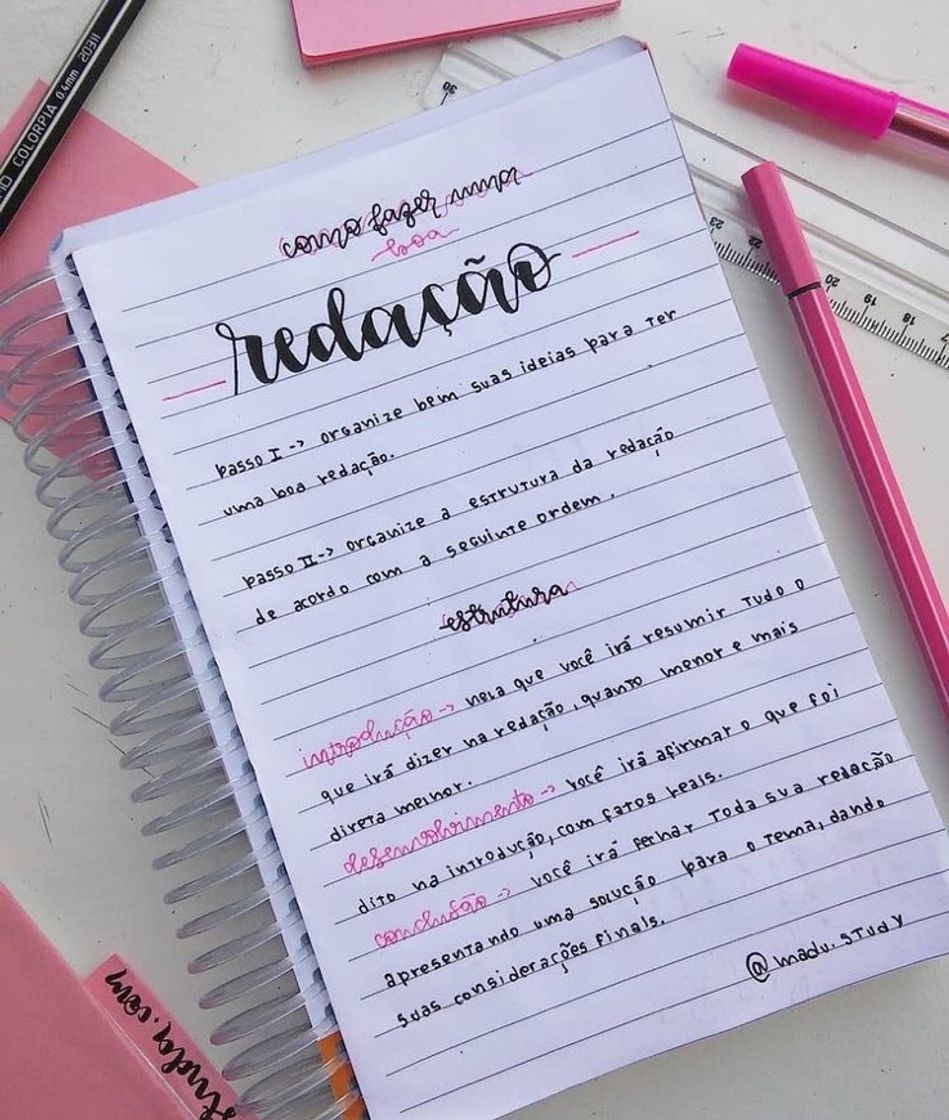 COLORPIA 0.4mm 20311
30
23
22
20
19
18
como fazer uma
boa
redação
passo I -> organize bem suas ideias para ter
uma boa redação.
passo II -> organize a estrutura da redação
de acordo com a seguinte ordem.
estrutura
introdução -> nela que você irá resumir tudo o
que irá dizer na redação, quanto menor e mais
direta melhor.
desenvolvimento -> você irá afirmar o que foi
dito na introdução, com fatos reais.
conclusão -> você irá fechar toda sua redação
apresentando uma solução para o tema, dando
suas considerações finais.
@madu.study